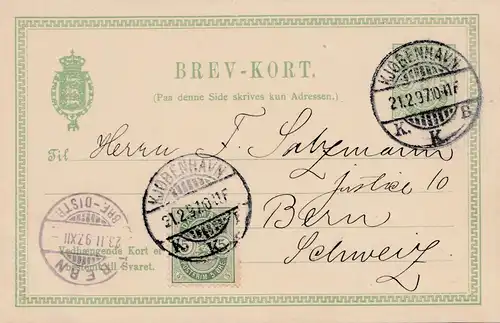 BREV-KORT.
(Paa denne Side skrives kun Adressen.)
KJØBENHAVN
21.2.97.10-11F
K. K. B
Til Herrn F. Salzmann
Justice 10
Bern
Schweiz
KJØBENHAVN
21.2.97.10-11F
K K
BRE-DISTR
23.II.97.XII
BERN
Vedhængende Kort er
bestemt til Svaret.
POSTFRIM. 5 ØRE